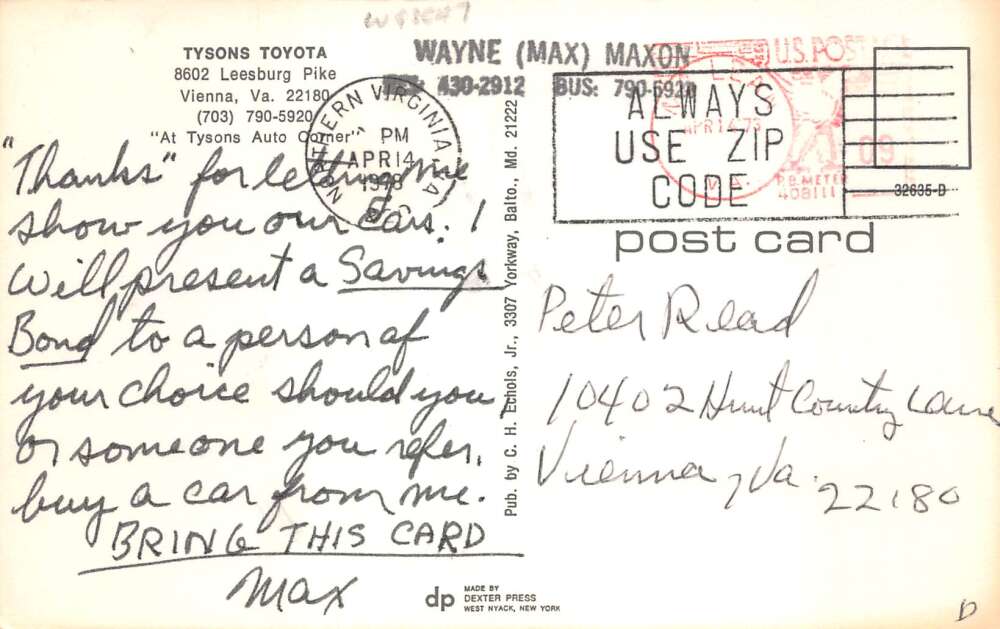 TYSONS TOYOTA
8602 Leesburg Pike
Vienna, Va. 22180
(703) 790-5920
"At Tysons Auto Corner"
WAYNE (MAX) MAXON
430-2912 BUS: 790-5920
NORTHERN VIRGINIA
PM
APR 14
1978
ALWAYS
USE ZIP
CODE
U.S. POSTAGE
APR 14 78
VA.
P.B. METER
408111
09
32635-D
post card
"Thanks" for letting me
show you our cars. I
will present a Savings
Bond to a person of
your choice should you,
or someone you refer,
buy a car from me.
BRING THIS CARD
Max
Pub. by C. H. Echols, Jr., 3307 Yorkway, Balto., Md. 21222
Peter Read
10402 Hunt Country Lane
Vienna, Va.
22180
dp
MADE BY
DEXTER PRESS
WEST NYACK, NEW YORK
D